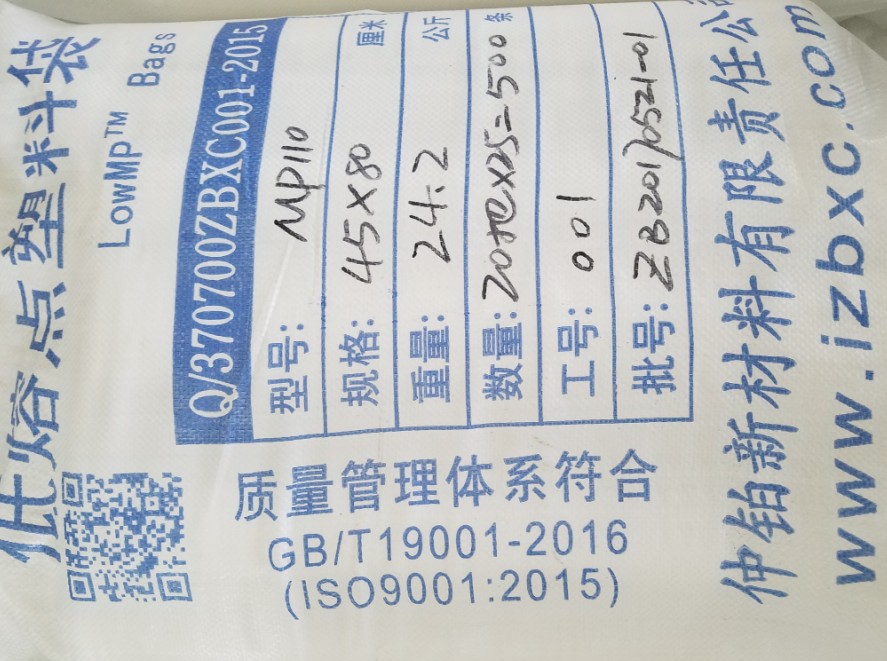 低熔点塑料袋
LowMp™ Bags
Q/370700ZBXC001-2015
型号: MP110
规格: 45×80 厘米
重量: 24.2 公斤
数量: 20把×25=500 条
工号: 001
批号: ZB20170521-01
质量管理体系符合
GB/T19001-2016
(ISO9001:2015)
仲铂新材料有限责任公司
www.izbxc.com